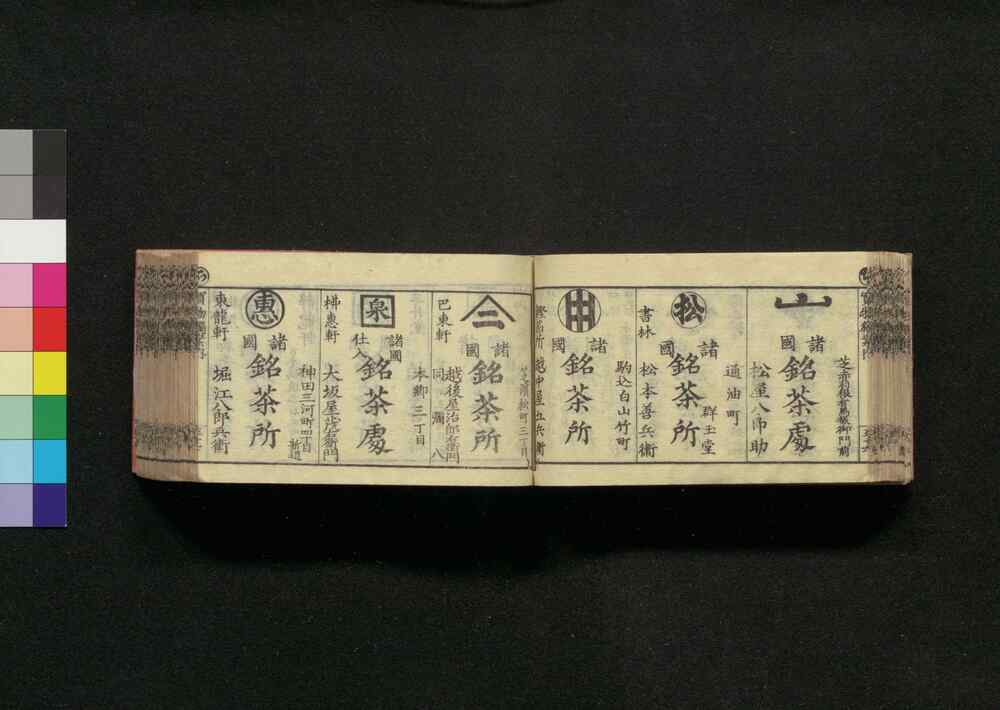 山
諸國
銘茶處
芝赤羽根有馬様御門前
松屋八郎助
松
諸國
銘茶所
通油町
群玉堂
書林
松本善兵衛
諸國
銘茶所
駒込白山竹町
越中屋五兵衛
諸國
銘茶所
芝濱松町三丁目
巴東軒
越後屋治郎右衛門
同
本郷三丁目
泉
諸國
仕入
銘茶處
大坂屋
神田三河町四丁目
新道
惠
諸國
銘茶所
東龍軒
堀江八郎兵衛